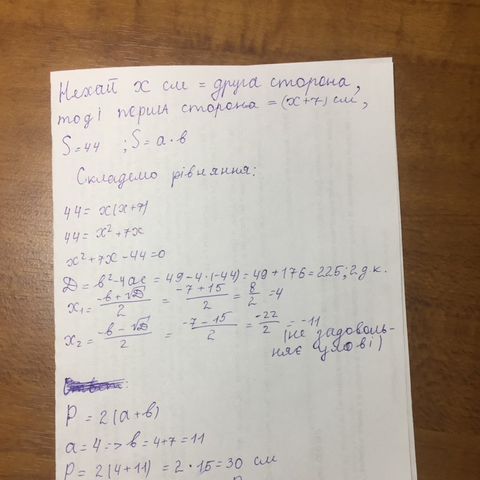 Нехай x см = друга сторона,
тоді перша сторона = (x+7) см,
S=44 ; S = a · b
Складемо рівняння:
44 = x(x+7)
44 = x²+7x
x²+7x-44=0
D = b²-4ac = 49-4·(-44) = 49+176 = 225; 2 д.к.
x₁ = (-b+√D)/2 = (-7+15)/2 = 8/2 = 4
x₂ = (-b-√D)/2 = (-7-15)/2 = -22/2 = -11
(не задоволь-
няє умові)
P = 2(a+b)
a = 4 => b = 4+7 = 11
P = 2(4+11) = 2·15 = 30 см